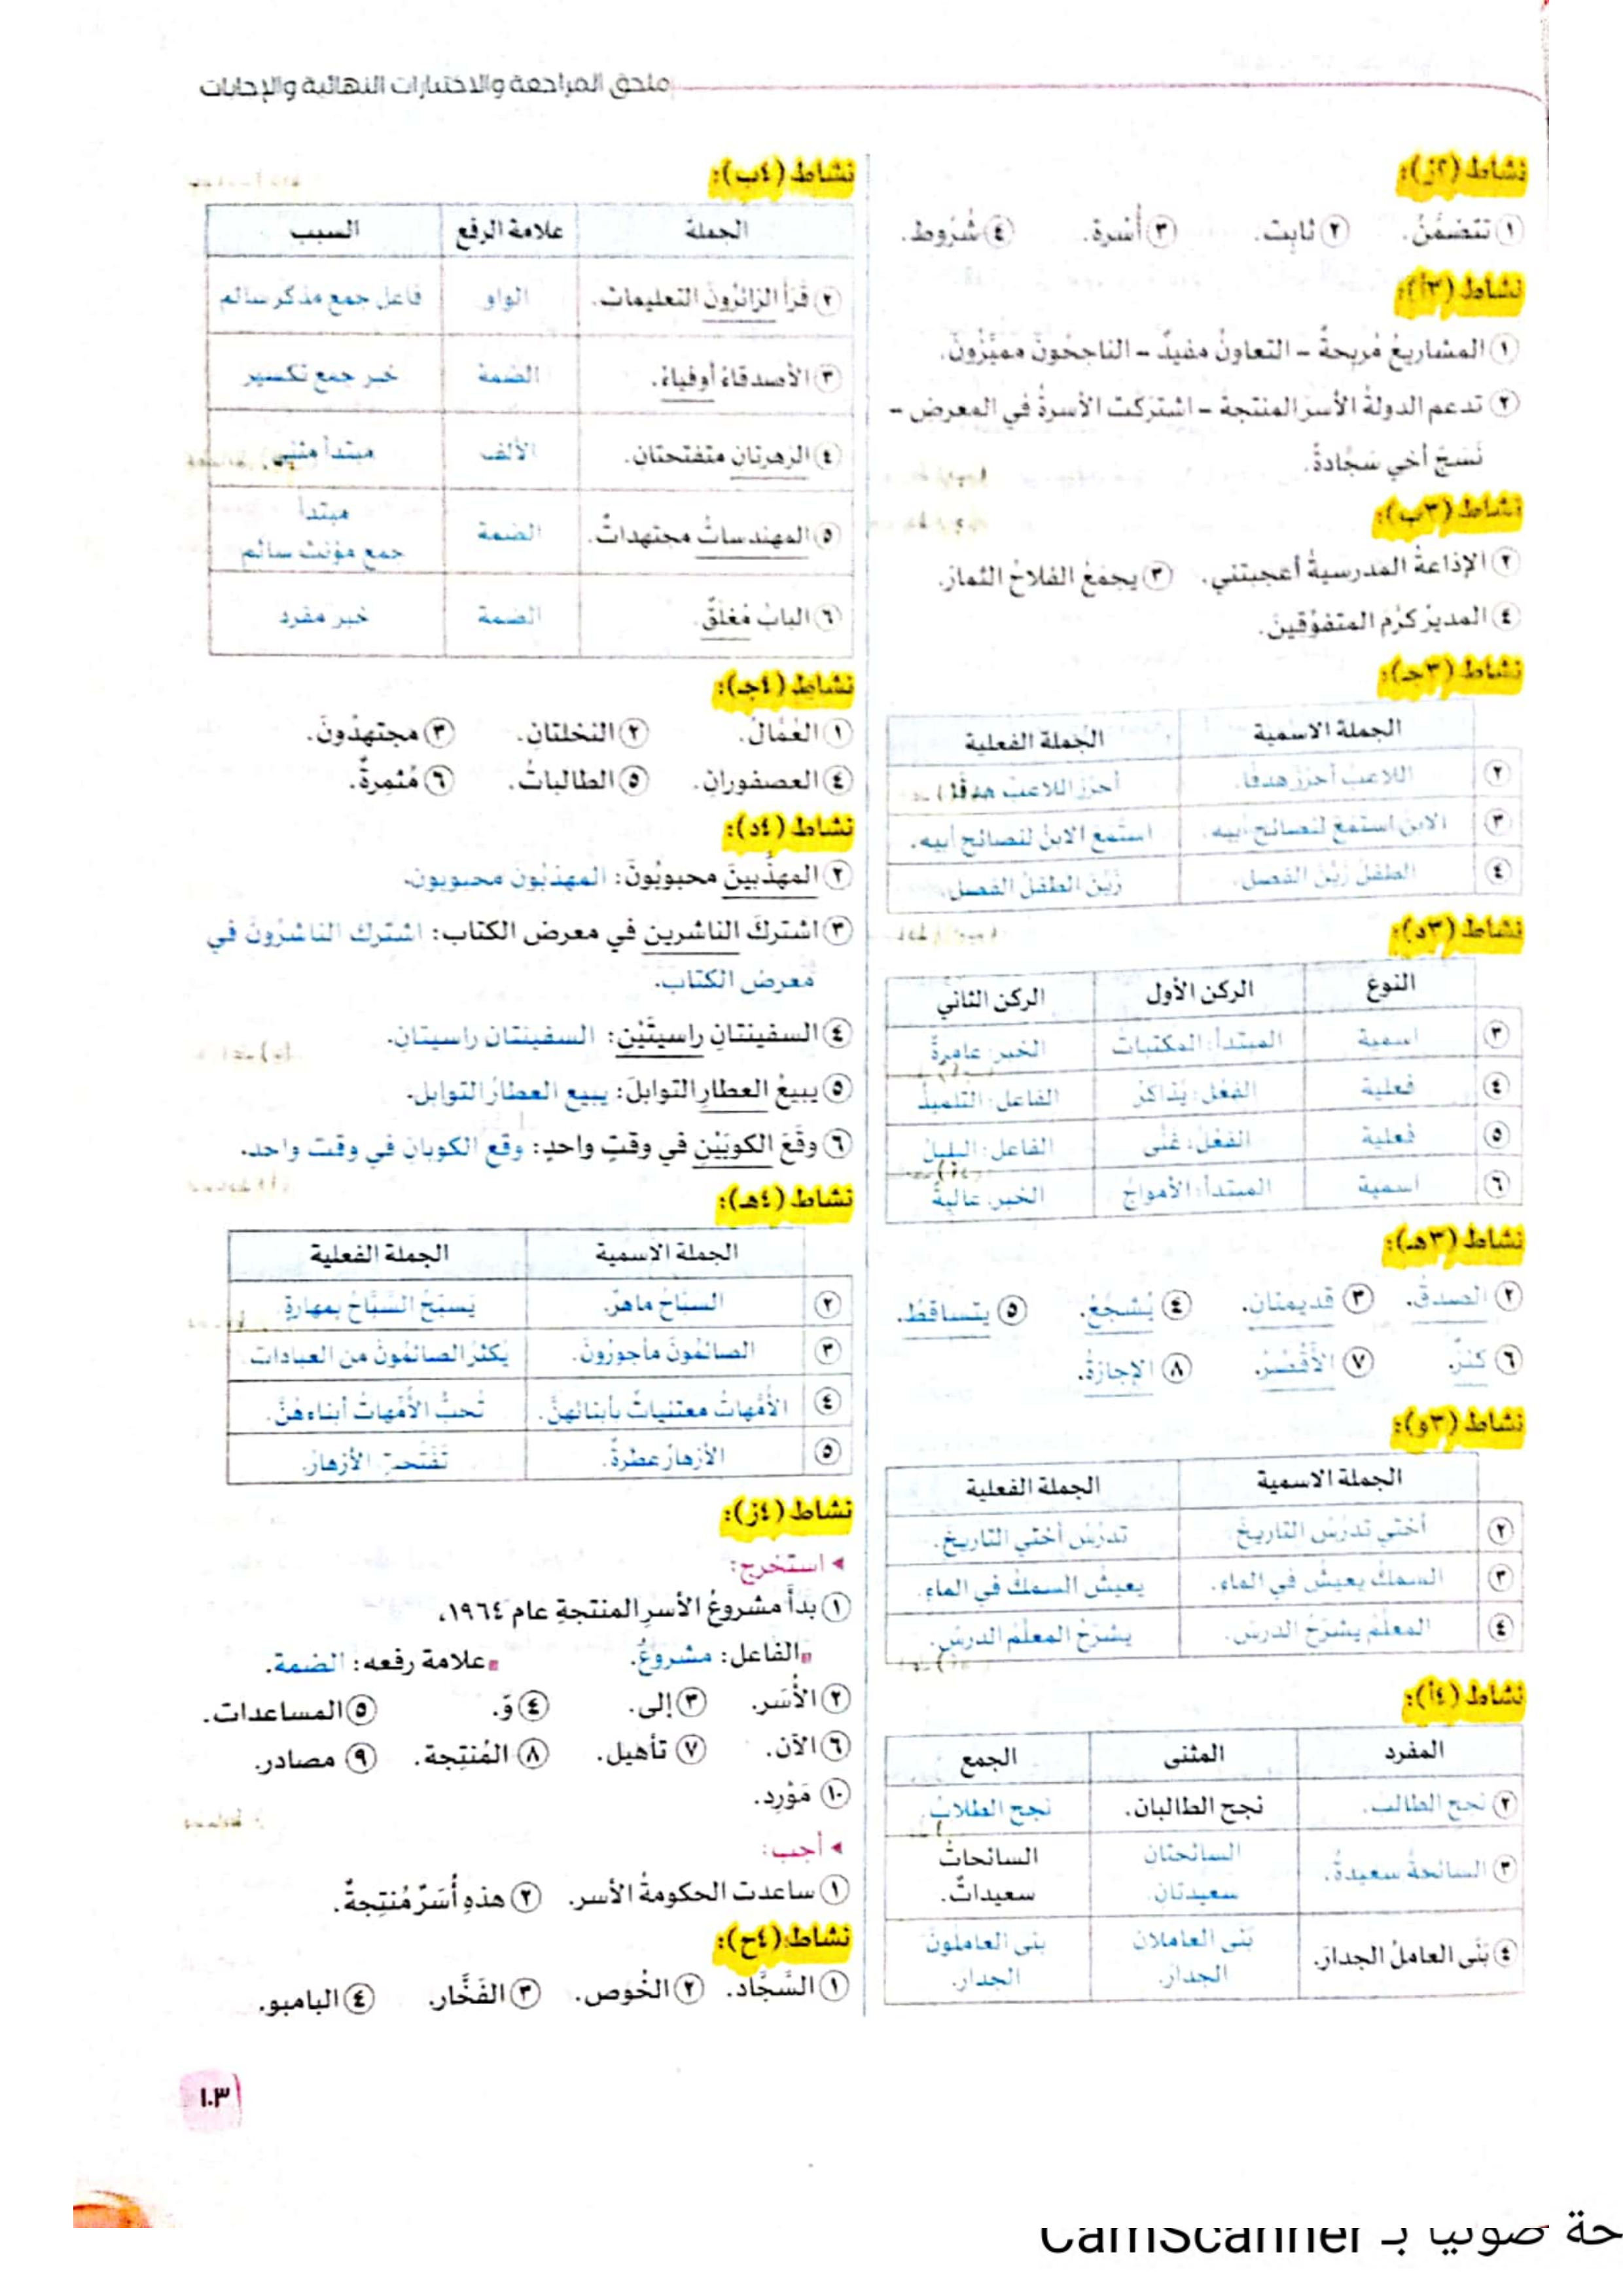 ملحق المراجعة والاختبارات النهائية والإجابات
نشاط (٢ز):
١ تتضمَّنُ. ٢ ثابِت. ٣ أُسْرة. ٤ شُرُوط.
نشاط (٣أ):
١ المشاريعُ مُربِحةٌ - التعاونُ مفيدٌ - الناجحُونَ مميَّزُونَ.
٢ تدعم الدولةُ الأسرَ المنتجة - اشتركَت الأسرةُ في المعرض -
نَسَجَ أخي سَجَّادةً.
نشاط (٣ب):
٢ الإذاعةُ المَدرسيةُ أعجبتني. ٣ يجمَعُ الفلاحُ الثمارَ.
٤ المديرُ كرَّمَ المتفوِّقِينَ.
نشاط (٣جـ):
الجملة الاسمية الجُملة الفعلية
٢ اللاعبُ أحرَزَ هدفًا. أحرَزَ اللاعبُ هدفًا.
٣ الابنُ استمَعَ لنصائح أبيه. استمَعَ الابنُ لنصائح أبيه.
٤ الطفلُ زيَّنَ الفصل. زَيَّنَ الطفلُ الفصل.
نشاط (٣د):
النوع الركن الأول الركن الثاني
٣ اسمية المبتدأ: المكتباتُ الخبر: عامرةٌ
٤ فعلية الفعل: يُذاكرُ الفاعل: التلميذُ
٥ فعلية الفعل: غنَّى الفاعل: البلبلُ
٦ اسمية المبتدأ: الأمواجُ الخبر: عاليةٌ
نشاط (٣هـ):
٢ الصدقُ. ٣ قديمتان. ٤ يُشجِّعُ. ٥ يتساقطُ.
٦ كنزٌ. ٧ الأَقْصُرُ. ٨ الإجازةُ.
نشاط (٣و):
الجملة الاسمية الجملة الفعلية
٢ أختي تدرُسُ التاريخَ. تدرُسُ أختي التاريخَ.
٣ السمكُ يعيشُ في الماء. يعيشُ السمكُ في الماءِ.
٤ المعلمُ يشرَحُ الدرسَ. يشرَحُ المعلمُ الدرسَ.
نشاط (٤أ):
المفرد المثنى الجمع
٢ نجح الطالبُ. نجح الطالبان. نجح الطلابُ.
٣ السائحةُ سعيدةٌ. السائحتان السائحاتُ
سعيدتان. سعيداتٌ.
٤ بَنَى العاملُ الجدارَ. بَنَى العاملان بنى العاملونَ
الجدارَ. الجدارَ.
نشاط (٤ب):
الجملة علامة الرفع السبب
٢ قرَأَ الزائرُونَ التعليمات. الواو فاعل جمع مذكر سالم
٣ الأصدقاءُ أوفياءُ. الضمة خبر جمع تكسير
٤ الزهرتان متفتحتان. الألف مبتدأ مثنى
٥ المهندساتُ مجتهداتٌ. الضمة مبتدأ
جمع مؤنث سالم
٦ البابُ مُغلَقٌ. الضمة خبر مفرد
نشاط (٤جـ):
١ العُمَّالُ. ٢ النخلتان. ٣ مجتهدُونَ.
٤ العصفوران. ٥ الطالباتُ. ٦ مُثمِرةٌ.
نشاط (٤د):
٢ المهذَّبينَ محبوبُونَ: المهذبُونَ محبوبون.
٣ اشتركَ الناشرين في معرض الكتاب: اشترك الناشرُونَ في
معرض الكتاب.
٤ السفينتانِ راسيتَيْنِ: السفينتان راسيتانِ.
٥ يبيعُ العطارِ التوابلَ: يبيع العطارُ التوابل.
٦ وقَعَ الكوبَيْنِ في وقتٍ واحدٍ: وقع الكوبانِ في وقت واحد.
نشاط (٤هـ):
الجملة الاسمية الجملة الفعلية
٢ السبَّاحُ ماهرٌ. يَسبَحُ السَّبَّاحُ بمهارةٍ.
٣ الصائمُونَ مأجورُونَ. يُكثِرُ الصائمُونَ من العبادات.
٤ الأمَّهاتُ معتنياتٌ بأبنائهنَّ. تُحبُّ الأمَّهاتُ أبناءهُنَّ.
٥ الأزهارُ عطرةٌ. تفتَّحتِ الأزهارُ.
نشاط (٤ز):
◂ استخرج:
١ بدأَ مشروعُ الأسرِ المنتجةِ عام ١٩٦٤،
الفاعل: مشروعُ. علامة رفعه: الضمة.
٢ الأُسَر. ٣ إلى. ٤ وَ. ٥ المساعدات.
٦ الآن. ٧ تأهيل. ٨ المُنتِجة. ٩ مصادر.
١٠ مَوْرِد.
◂ أجب:
١ ساعدت الحكومةُ الأسر. ٢ هذه أُسَرٌ مُنتِجةٌ.
نشاط (٤ح):
١ السَّجَّاد. ٢ الخُوص. ٣ الفَخَّار. ٤ البامبو.
١٠٣
حة ضوئيا بـ CamScanner